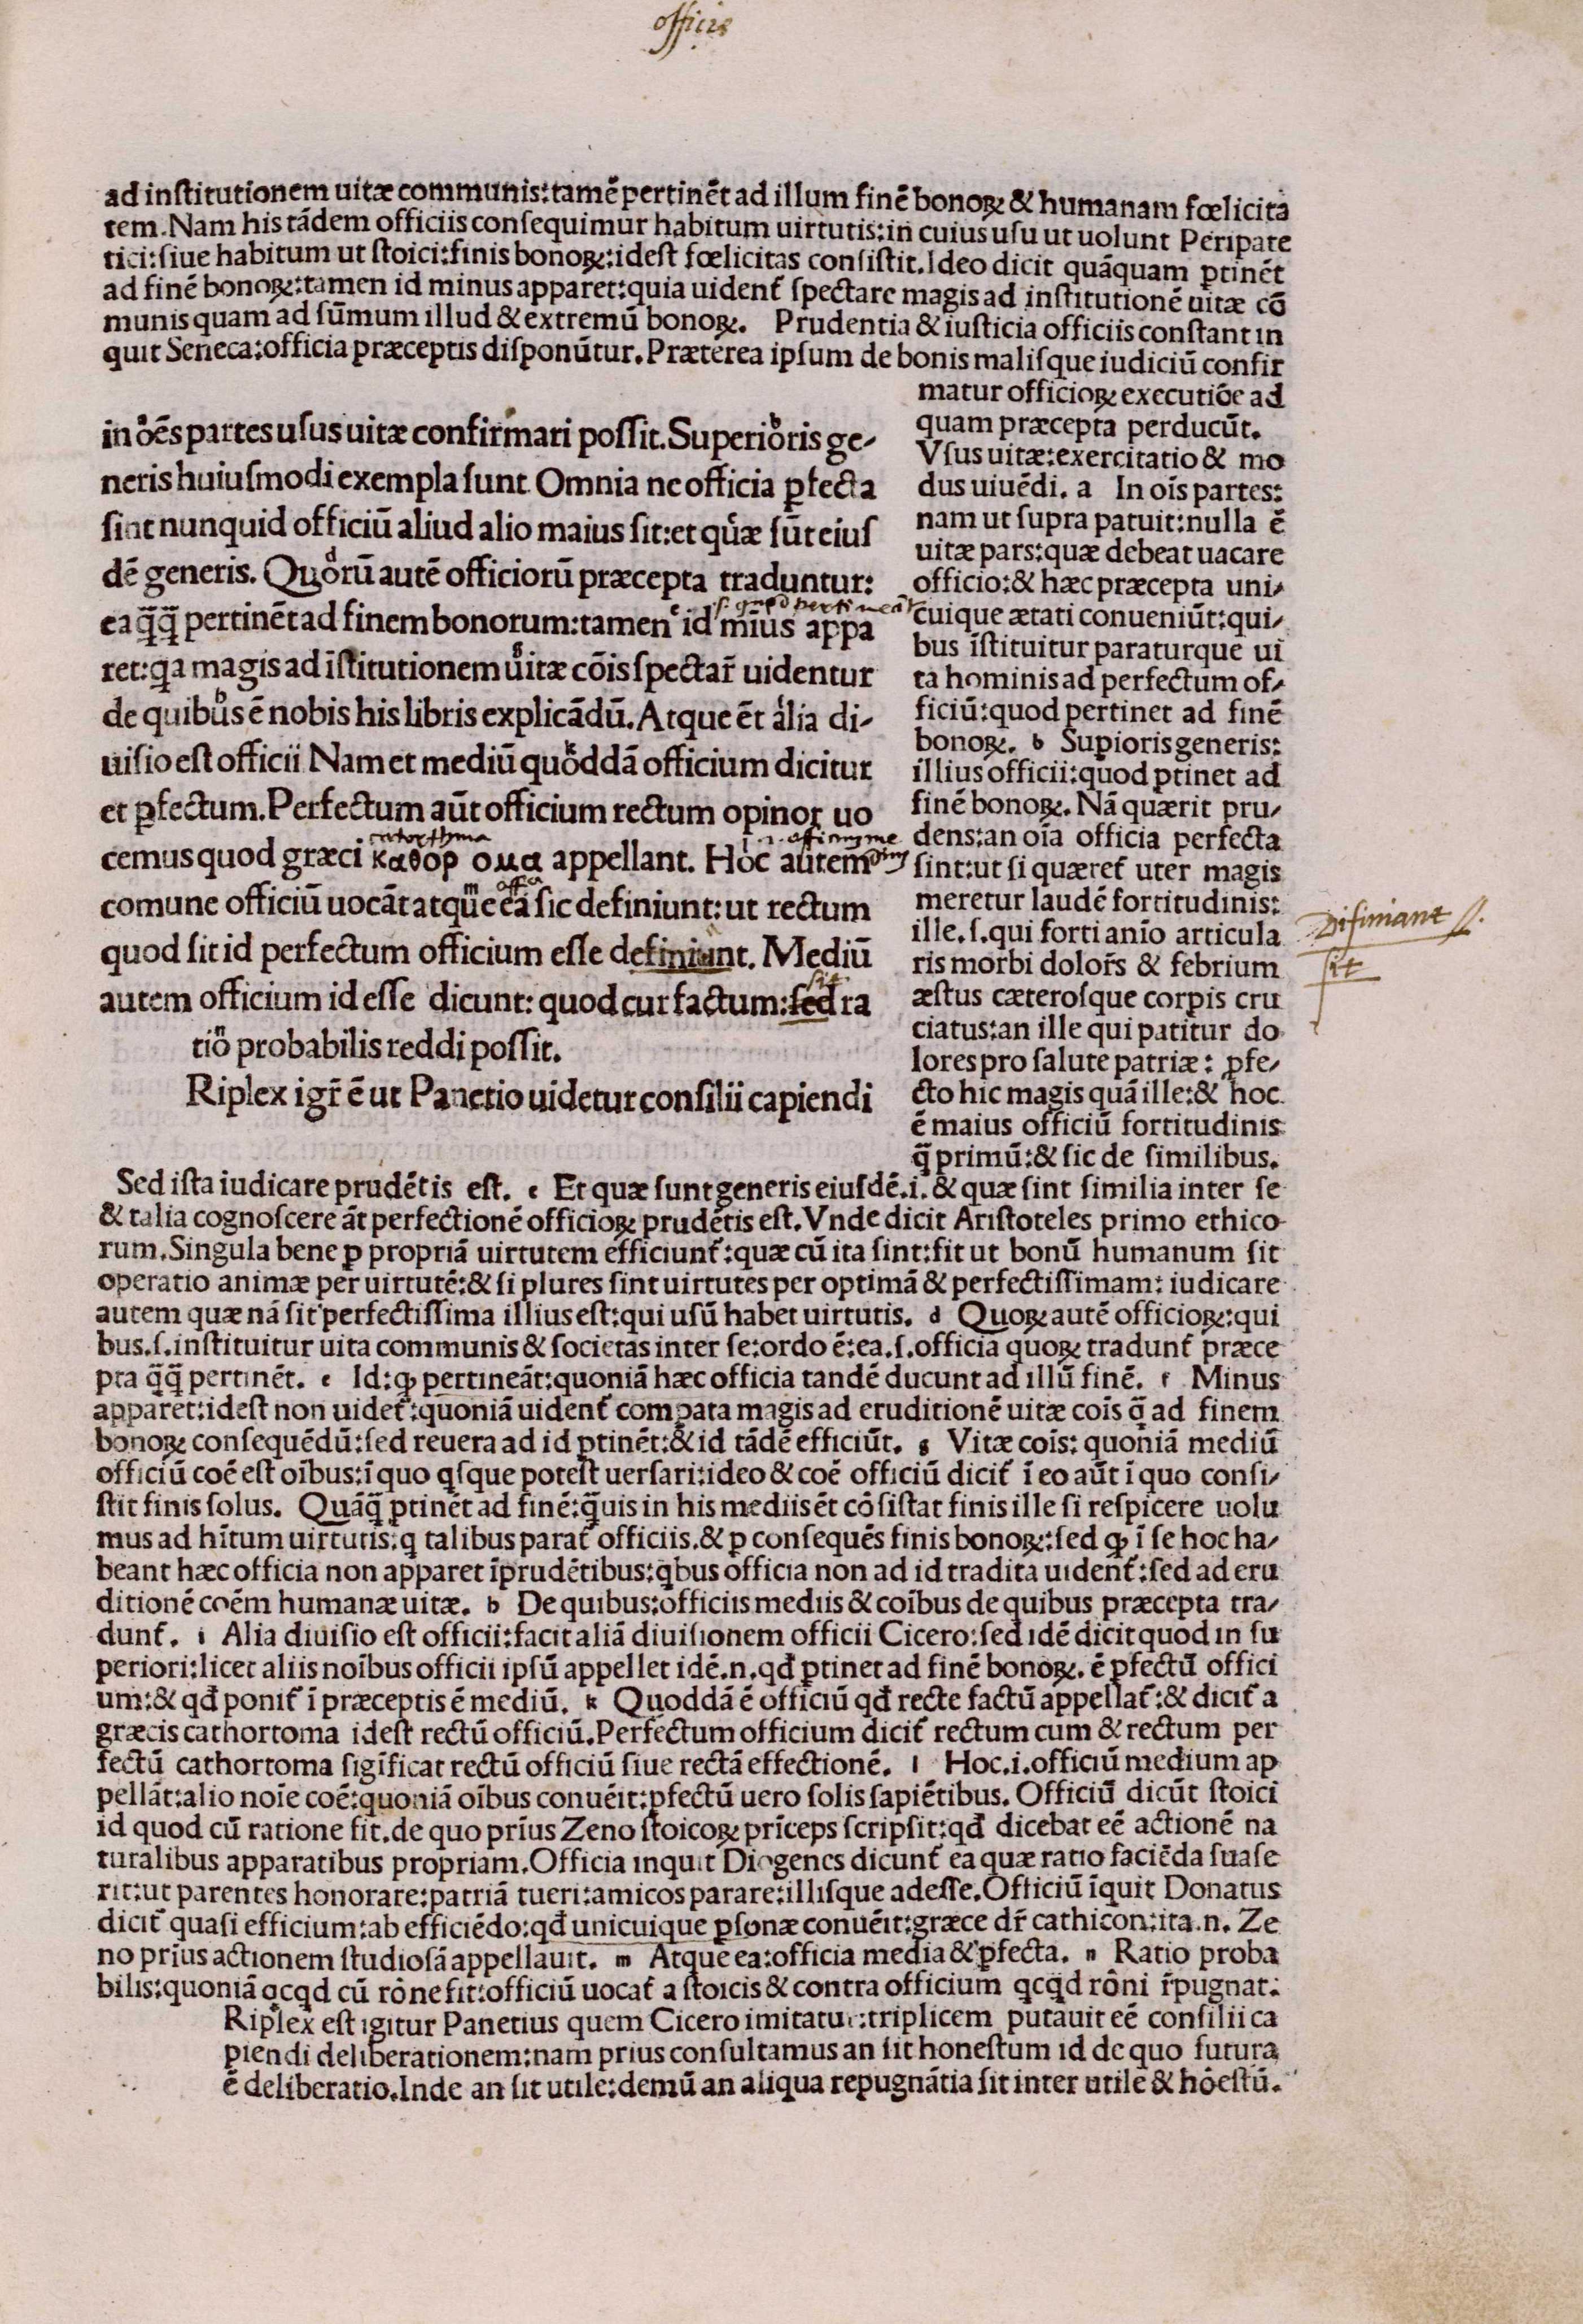 officiis
ad institutionem uitæ communis:tamē pertinēt ad illum finē bonoꝝ & humanam fœlicitā
tem.Nam his tādem officiis consequimur habitum uirtutis:in cuius usu ut uolunt Peripate
tici:siue habitum ut stoici:finis bonoꝝ:idest fœlicitas consistit.Ideo dicit quāquam ꝑtinēt
ad finē bonoꝝ:tamen id minus apparet:quia uidenť spectare magis ad institutionē uitæ cō
munis quam ad sūmum illud & extremū bonoꝝ. Prudentia & iusticia officiis constant in
quit Seneca:officia præceptis disponūtur.Præterea ipsum de bonis malisque iudiciū confir
matur officioꝝ executiōe ad
quam præcepta perducūt.
Vsus uitæ:exercitatio & mo
dus uiuēdi. a In oīs partes:
nam ut supra patuit:nulla ē
uitæ pars:quæ debeat uacare
officio:& hæc præcepta uni-
cuique ætati conueniūt:qui-
bus īstituitur paraturque ui
ta hominis ad perfectum of-
ficiū:quod pertinet ad finē
bonoꝝ. b Supioris generis:
illius officii:quod ꝑtinet ad
finē bonoꝝ. Nā quærit pru-
dens:an oīa officia perfecta
sint:ut si quæreť uter magis
meretur laudē fortitudinis:
ille.s.qui forti anīo articula
ris morbi dolor̄s & febrium
æstus cæterosque corꝑis cru
ciatus:an ille qui patitur do
lores pro salute patriæ: ꝑfe-
cto hic magis quā ille:& hoc
ē maius officiū fortitudinis
q̄ primū:& sic de similibus.
in oēs partes usus uitæ confirmari possit.Superioris ge-
neris huiusmodi exempla sunt Omnia ne officia ꝑfecta
sint nunquid officiū aliud alio maius sit:et quæ sūt eius
dē generis. Quorū autē officiorū præcepta traduntur:
s. quod pertineāt
ea q̄q̄ pertinēt ad finem bonorum:tamen id mīus appa
ret:qa magis ad īstitutionem uitæ cōis spectar̄ uidentur
de quibus ē nobis his libris explicādū.Atque ēt alia di-
uisio est officii Nam et mediū quoddā officium dicitur
et ꝑfectum.Perfectum aūt officium rectum opinor uo
cemus quod græci καθορ ομα appellant. Hoc autem
comune officiū uocāt atque ea sic definiunt:ut rectum
quod sit id perfectum officium esse definiunt. Mediū
sit
autem officium id esse dicunt: quod cur factum:sed ra
tio probabilis reddi possit.
Riplex igr̄ ē ut Panetio uidetur consilii capiendi
Difiniant
sit
Sed ista iudicare prudētis est. c Et quæ sunt generis eiusdē.i. & quæ sint similia inter se
& talia cognoscere āt perfectionē officioꝝ prudētis est.Vnde dicit Aristoteles primo ethico
rum.Singula bene ꝑ propriā uirtutem efficiunť:quæ cū ita sint:fit ut bonū humanum sit
operatio animæ per uirtutē:& si plures sint uirtutes per optimā & perfectissimam: iudicare
autem quæ nā sit perfectissima illius est:qui usū habet uirtutis. d Quoꝝ autē officioꝝ:qui
bus.s.instituitur uita communis & societas inter se:ordo ē:ea.s.officia quoꝝ tradunť præce
pta q̄q̄ pertinēt. e Id:ꝙ pertineāt:quoniā hæc officia tandē ducunt ad illū finē. f Minus
apparet:idest non uideť:quoniā uidenť compata magis ad eruditionē uitæ cōis q̄ ad finem
bonoꝝ consequēdū:sed reuera ad id ꝑtinēt:& id tādē efficiūt. g Vitæ cōis: quoniā mediū
officiū coē est oībus:ī quo qsque potest uersari:ideo & coē officiū diciť ī eo aūt ī quo consi-
stit finis solus. Quāq̄ ꝑtinēt ad finē:q̄uis in his mediis ēt cōsistat finis ille si respicere uolu
mus ad hītum uirtutis:q talibus parať officiis.& ꝑ consequēs finis bonoꝝ:sed ꝙ ī se hoc ha-
beant hæc officia non apparet īprudētibus:qbus officia non ad id tradita uidenť:sed ad eru
ditionē coēm humanæ uitæ. h De quibus:officiis mediis & coībus de quibus præcepta tra-
dunť. i Alia diuisio est officii:facit aliā diuisionem officii Cicero:sed idē dicit quod in su
periori:licet aliis noībus officii ipsū appellet idē.n.qđ ꝑtinet ad finē bonoꝝ. ē ꝑfectū offici
um:& qđ poniť ī præceptis ē mediū. k Quoddā ē officiū qđ recte factū appellať:& diciť a
græcis cathortoma idest rectū officiū.Perfectum officium diciť rectum cum & rectum per
fectū cathortoma sigīficat rectū officiū siue rectā effectionē. l Hoc.i.officiū medium ap
pellāt:alio noīe coē:quoniā oībus conuēit:ꝑfectū uero solis sapiētibus. Officiū dicūt stoici
id quod cū ratione fit.de quo prīus Zeno stoicoꝝ prīceps scripsit:qđ dicebat eē actionē na
turalibus apparatibus propriam.Officia inquit Diogenes dicunť ea quæ ratio faciēda suase
rit:ut parentes honorare:patriā tueri:amicos parare:illisque adesse.Officiū īquit Donatus
diciť quasi efficium:ab efficiēdo:qđ unicuique ꝑsonæ conuēit:græce dr̄ cathicon:ita.n. Ze
no prīus actionem studiosā appellauit. m Atque ea:officia media & ꝑfecta. n Ratio proba
bilis:quoniā qcqd cū rōne fit:officiū uocať a stoicis & contra officium qcqd rōni r̄pugnat:
Riplex est igitur Panetius quem Cicero imitatur:triplicem putauit eē consilii ca
piendi deliberationem:nam prius consultamus an sit honestum id de quo futura
ē deliberatio.Inde an sit utile:demū an aliqua repugnātia sit inter utile & hōestū.